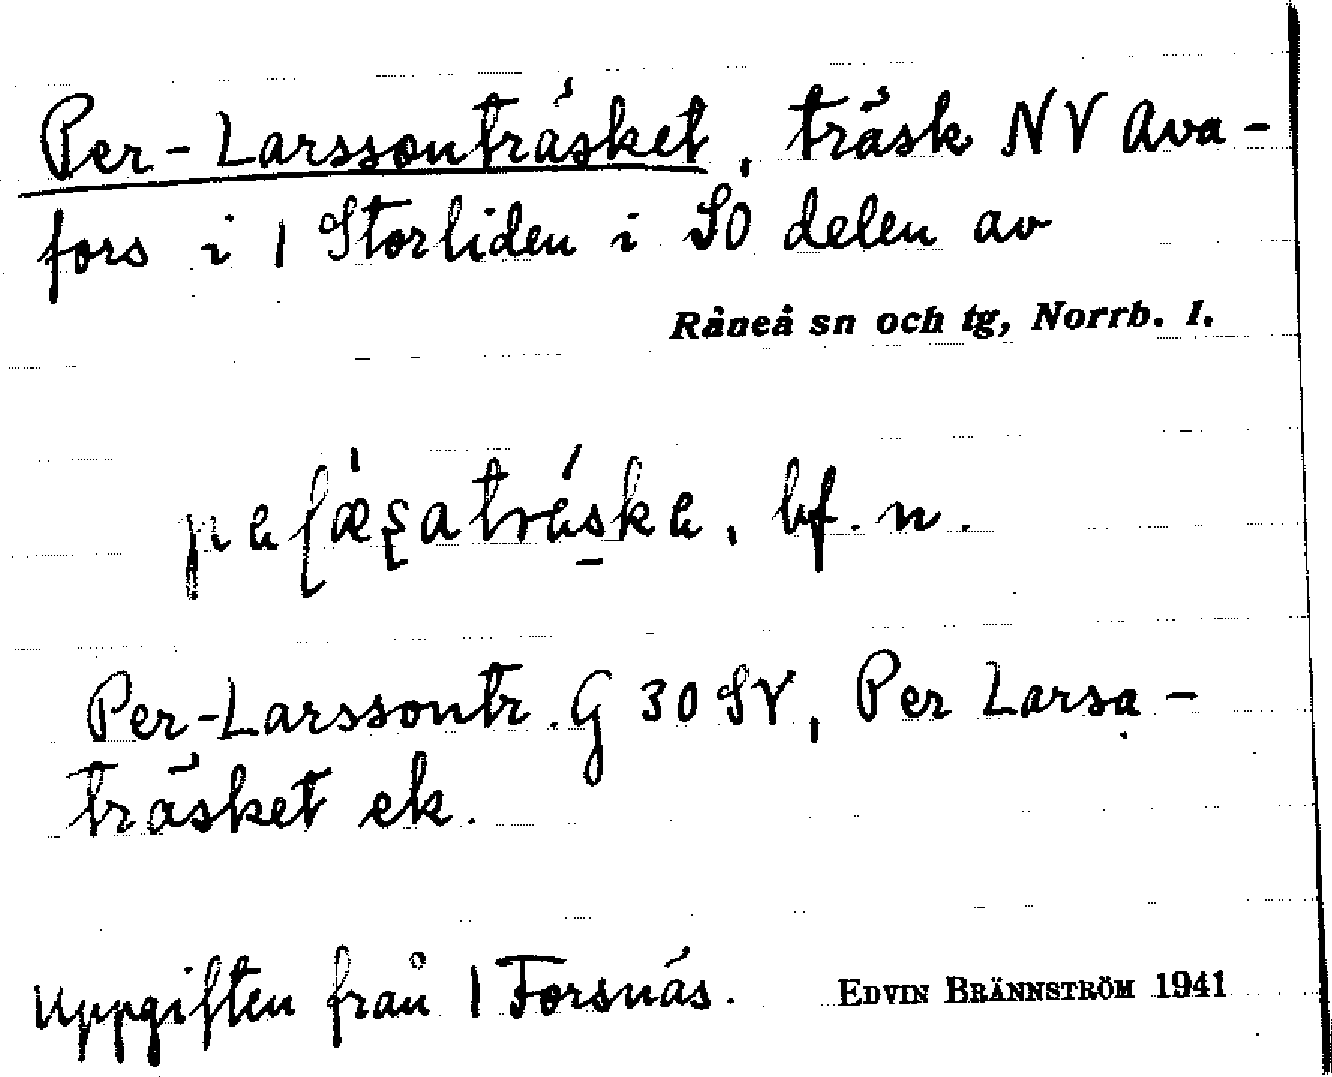 Per-Larssonträsket, träsk NV Ava-
fors i 1 Storliden i SO delen av
Råneå sn och tg, Norrb. l.
bf. n.
Per-Larssontr. G 30 SV, Per Larsa-
träsket ek.
Uppgiften från 1 Forsnäs. EDVIN BRÄNNSTRÖM 1941